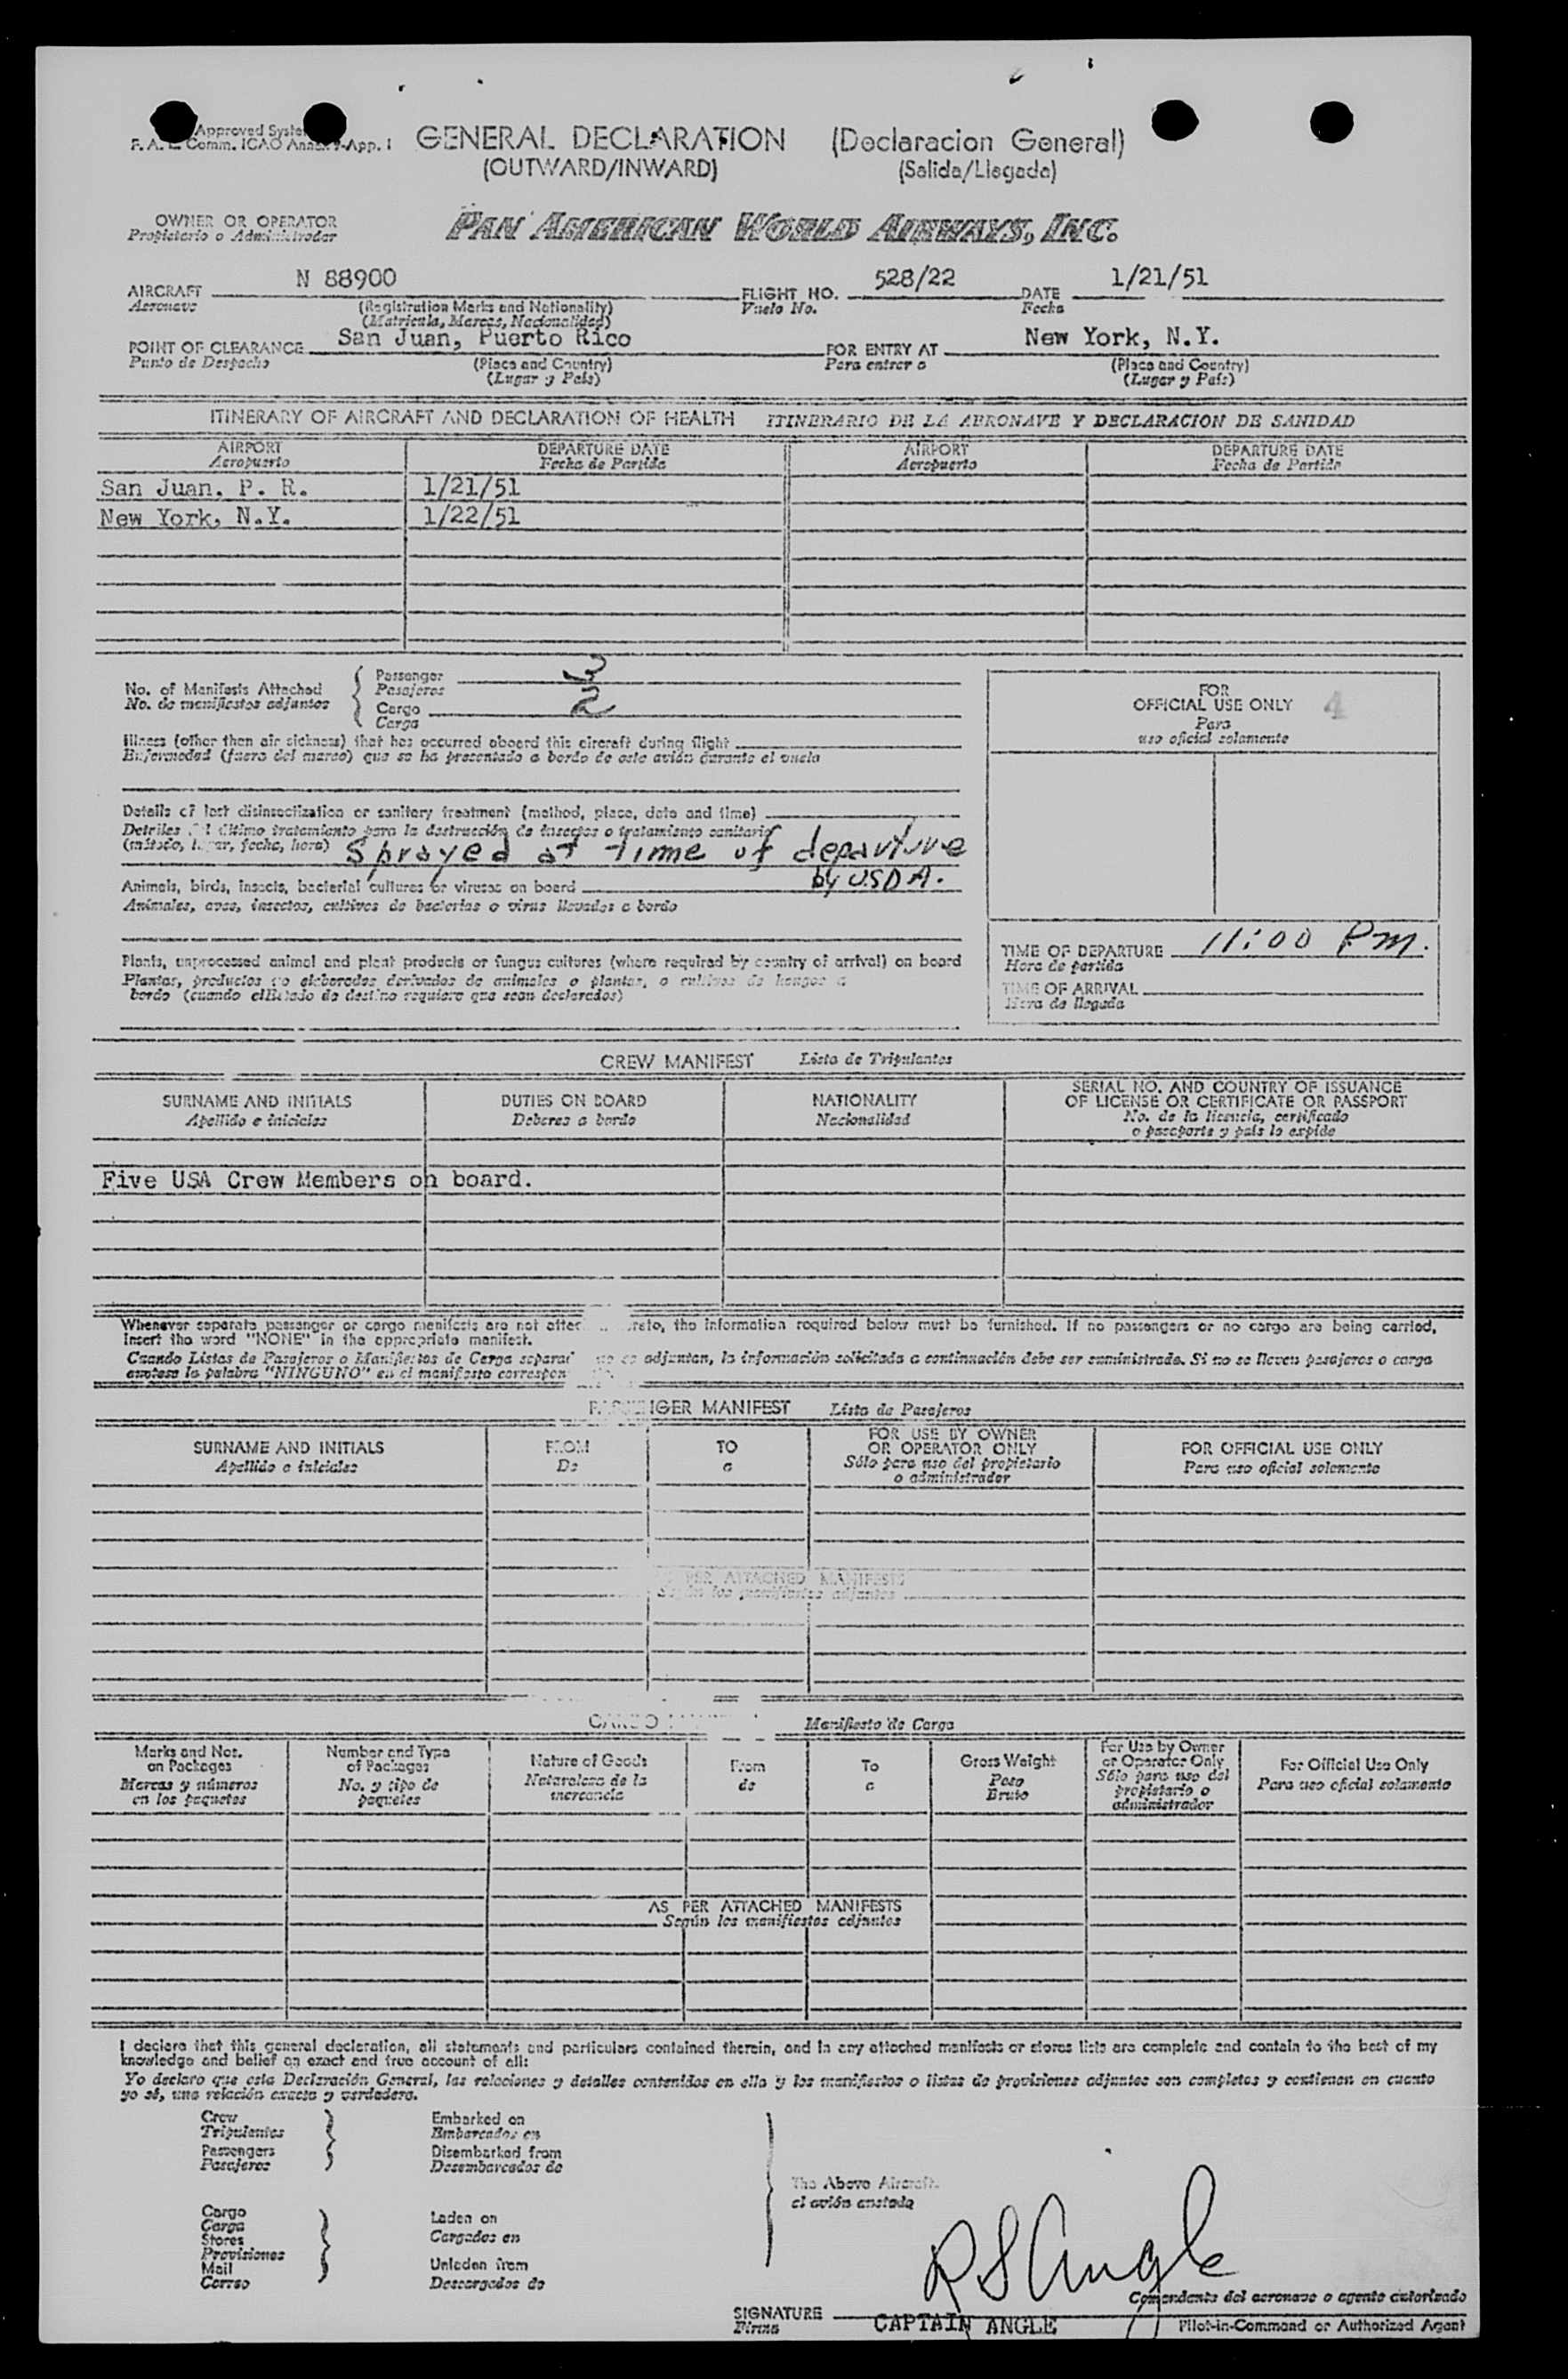 Approved Syste
F. A. L. Comm. ICAO Annex 9-App. I
GENERAL DECLARATION (Declaracion General)
(OUTWARD/INWARD) (Salida/Llegada)
OWNER OR OPERATOR
Propietario o Administrador
PAN AMERICAN WORLD AIRWAYS, INC.
AIRCRAFT N 88900 FLIGHT NO. 528/22 DATE 1/21/51
Aeronave (Registration Marks and Nationality) Vuelo No. Fecha
(Matricula, Marcas, Nacionalidad)
POINT OF CLEARANCE San Juan, Puerto Rico FOR ENTRY AT New York, N.Y.
Punto de Despacho (Place and Country) Para entrar a (Place and Country)
(Lugar y País) (Lugar y País)
ITINERARY OF AIRCRAFT AND DECLARATION OF HEALTH ITINERARIO DE LA AERONAVE Y DECLARACION DE SANIDAD
AIRPORT DEPARTURE DATE AIRPORT DEPARTURE DATE
Aeropuerto Fecha de Partida Aeropuerto Fecha de Partida
San Juan. P. R. 1/21/51
New York, N.Y. 1/22/51
No. of Manifests Attached
No. de manifiestos adjuntos
Passenger 3
Pasajeros
Cargo 2
Carga
Illness (other than air sickness) that has occurred aboard this aircraft during flight
Enfermedad (fuera del mareo) que se ha presentado a bordo de este avión durante el vuelo
Details of last disinsectization or sanitary treatment (method, place, date and time)
Detalles del último tratamiento para la destrucción de insectos o tratamiento sanitario
(método, lugar, fecha, hora) Sprayed at time of departure
by USDA.
Animals, birds, insects, bacterial cultures or viruses on board
Animales, aves, insectos, cultivos de bacterias o virus llevados a bordo
Plants, unprocessed animal and plant products or fungus cultures (where required by country of arrival) on board
Plantas, productos no elaborados derivados de animales o plantas, o cultivos de hongos a
bordo (cuando el Estado de destino requiere que sean declarados)
FOR
OFFICIAL USE ONLY 4
Para
uso oficial solamente
TIME OF DEPARTURE 11:00 Pm.
Hora de partida
TIME OF ARRIVAL
Hora de llegada
CREW MANIFEST Lista de Tripulantes
SURNAME AND INITIALS DUTIES ON BOARD NATIONALITY SERIAL NO. AND COUNTRY OF ISSUANCE
OF LICENSE OR CERTIFICATE OR PASSPORT
Apellido e iniciales Deberes a bordo Nacionalidad No. de la licencia, certificado
o pasaporte y país lo expide
Five USA Crew Members on board.
Whenever separate passenger or cargo manifests are not attac reto, the information required below must be furnished. If no passengers or no cargo are being carried,
insert the word "NONE" in the appropriate manifest.
Cuando Listas de Pasajeros o Manifiestos de Carga separad no se adjuntan, la información solicitada a continuación debe ser suministrada. Si no se lleven pasajeros o carga
anotese la palabra "NINGUNO" en el manifiesto correspon
PASSENGER MANIFEST Lista de Pasajeros
SURNAME AND INITIALS FROM TO FOR USE BY OWNER
OR OPERATOR ONLY FOR OFFICIAL USE ONLY
Apellido e iniciales De a Sólo para uso del propietario
o administrador Para uso oficial solamente
PER ATTACHED MANIFESTS
Según los manifiestos adjuntos
CARGO Manifiesto de Carga
Marks and Nos.
on Packages
Marcas y números
en los paquetes
Number and Type
of Packages
No. y tipo de
paquetes
Nature of Goods
Naturaleza de la
mercancía
From
de
To
a
Gross Weight
Peso
Bruto
For Use by Owner
or Operator Only
Sólo para uso del
propietario o
administrador
For Official Use Only
Para uso oficial solamente
AS PER ATTACHED MANIFESTS
Según los manifiestos adjuntos
I declare that this general declaration, all statements and particulars contained therein, and in any attached manifests or stores lists are complete and contain to the best of my
knowledge and belief an exact and true account of all:
Yo declaro que esta Declaración General, las relaciones y detalles contenidos en ella y los manifiestos o listas de provisiones adjuntas son completas y contienen en cuanto
yo sé, una relación exacta y verdadera.
Crew
Tripulantes
Passengers
Pasajeros
Embarked on
Embarcados en
Disembarked from
Desembarcados de
Cargo
Carga
Stores
Provisiones
Mail
Correo
Laden on
Cargados en
Unladen from
Descargados de
The Above Aircraft.
el avión anotado
R S Angle
Comandante del aeronave o agente autorizado
SIGNATURE CAPTAIN ANGLE Pilot-in-Command or Authorized Agent
Firma